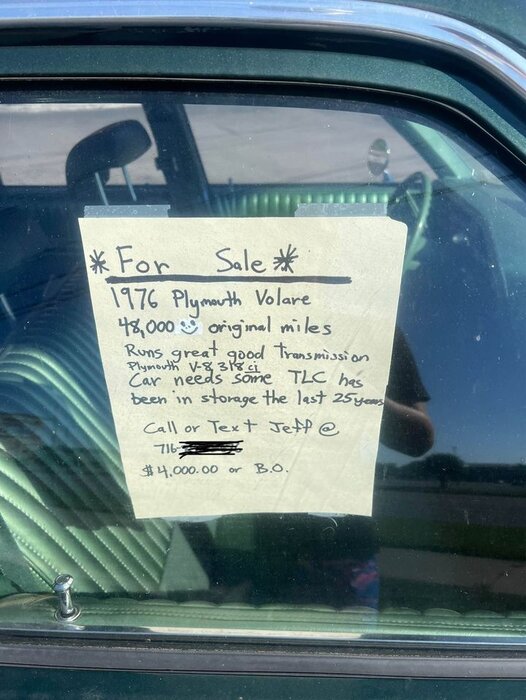 *For Sale*
1976 Plymouth Volare
48,000 original miles
Runs great good Transmission
Plymouth V-8 318 ci
Car needs some TLC has
been in storage the last 25 years
Call or Text Jeff @
716-
$4,000.00 or B.O.